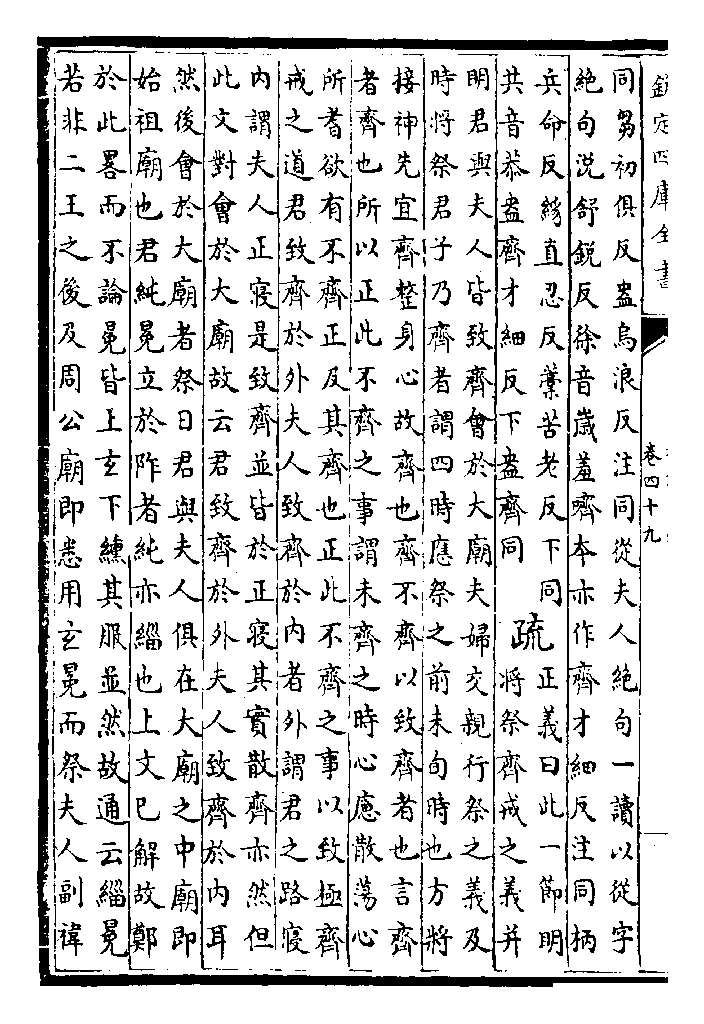 欽定四庫全書
卷四十九
同芻初俱反盎烏浪反注同從夫人絶句一讀以從字
絶句涚舒鋭反徐音嵗羞嚌本亦作齊才細反注同柄
兵命反緣直忍反藁苦老反下同
共音恭盎齊才細反下盎齊同
疏
正義曰此一節明
將祭齊戒之義并
明君與夫人皆致齊會於大廟夫婦交親行祭之義及
時將祭君子乃齊者謂四時應祭之前未旬時也方將
接神先宜齊整身心故齊也齊不齊以致齊者也言齊
者齊也所以正此不齊之事謂未齊之時心慮散蕩心
所耆欲有不齊正及其齊也正此不齊之事以致極齊
戒之道君致齊於外夫人致齊於内者外謂君之路寢
内謂夫人正寢是致齊並皆於正寢其實散齊亦然但
此文對會於大廟故云君致齊於外夫人致齊於内耳
然後會於大廟者祭日君與夫人俱在大廟之中廟即
始祖廟也君純冕立於阼者純亦緇也上文已解故鄭
於此畧而不論冕皆上玄下纁其服並然故通云緇冕
若非二王之後及周公廟即悉用玄冕而祭夫人副褘